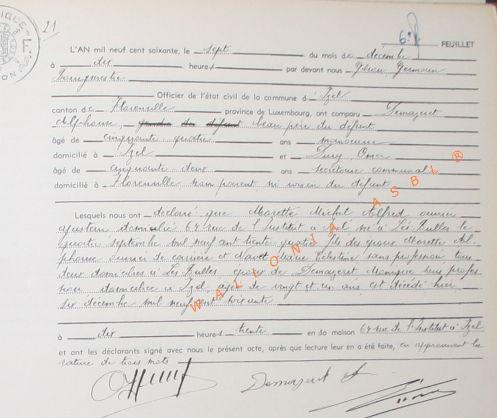 21
6e FEUILLET
L'AN mil neuf cent soixante, le sept du mois de décembre
à dix heures par devant nous
Bourgmestre
Officier de l'état civil de la commune d' Izel
canton de Florenville province de Luxembourg, ont comparu Demazuet
Alphonse, beau père du défunt
âgé de cinquante quatre ans manoeuvre
domicilié à Izel et
âgé de cinquante deux ans secrétaire communal
domicilié à Florenville non parent ni voisin du défunt
Lesquels nous ont déclaré que Marette Michel Alfred ouvrier
ajusteur domicilié 64 rue de l'Institut à Izel né à Les Bulles le
quatre septembre mil neuf cent trente quatre fils des époux Marette Al-
phonse ouvrier de carrière et Marie Célestine sans profession tous
deux domiciliés à Les Bulles époux de Demazuet Monique sans profes-
sion domiciliée à Izel, âgée de vingt et un ans est décédé hier
six décembre mil neuf cent soixante
à dix heures trente en sa maison 64 rue de l'Institut à Izel
et ont les déclarants signé avec nous le présent acte, après que lecture leur en a été faite, en approuvant la
rature de trois mots
Demazuet A
WALLONIA ASBL ®